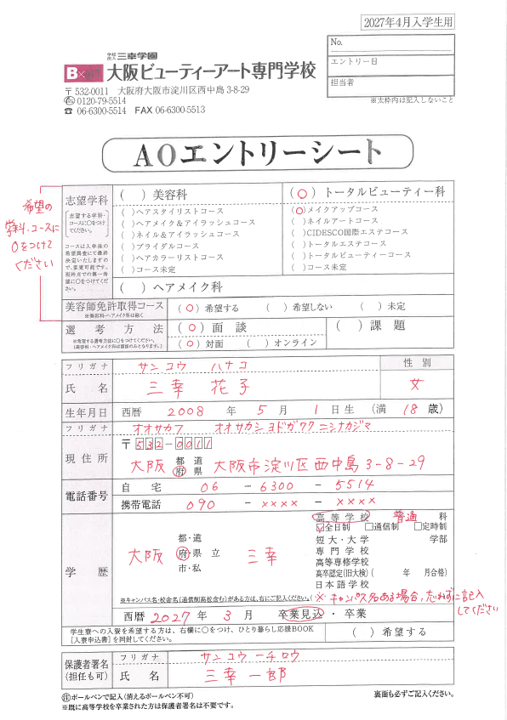 2027年4月入学生用
No.
エントリー日
担当者
※太枠内は記入しないこと
学校法人 三幸学園
大阪ビューティーアート専門学校
〒532-0011 大阪府大阪市淀川区西中島 3-8-29
0120-79-5514
☎ 06-6300-5514 FAX 06-6300-5513
AOエントリーシート
希望の
学科・コースに
○をつけて
ください
志望学科
志望する学科・
コースに○をつけ
てください。
( ) 美容科
( ) ヘアスタイリストコース
( ) ヘアメイク&アイラッシュコース
( ) ネイル&アイラッシュコース
( ) ブライダルコース
( ) ヘアカラーリストコース
( ) コース未定
(○) トータルビューティー科
(○) メイクアップコース
( ) ネイルアートコース
( ) CIDESCO国際エステコース
( ) トータルエステコース
( ) トータルビューティーコース
( ) コース未定
( ) ヘアメイク科
美容師免許取得コース
(○) 希望する ( ) 希望しない ( ) 未定
選考方法
(○) 面談 ( ) 課題
(○) 対面 ( ) オンライン
フリガナ サンコウ ハナコ 性別
氏名 三幸 花子 女
生年月日 西暦 2008 年 5 月 1 日生 (満 18 歳)
フリガナ オオサカフ オオサカシヨドガワクニシナカジマ
現住所 〒532-0011
大阪 都道府県 大阪市淀川区西中島3-8-29
電話番号 自宅 06 - 6300 - 5514
携帯電話 090 - xxxx - xxxx
学歴
大阪 都・道 府県 市・私 立 三幸
高等学校 普通 科
☑全日制 □通信制 □定時制
短大・大学 学部
専門学校
高等専修学校
高卒認定(旧大検)( 年 月合格)
日本語学校
※キャンパス名・校舎名(通信制高校含む)がある方は、右にご記入ください。(
※キャンパス名ある場合、忘れずに記入
してください
西暦 2027 年 3 月 卒業見込・卒業
学生寮への入寮を希望する方は、右欄に○をつけ、ひとり暮らし応援BOOK
[入寮申込書]を同封してください。
( ) 希望する
保護者署名
(担任も可)
フリガナ サンコウ イチロウ
氏名 三幸 一郎
㊟ボールペンで記入(消えるボールペン不可)
裏面も必ずご記入ください。
※既に高等学校を卒業された方は保護者署名は不要です。